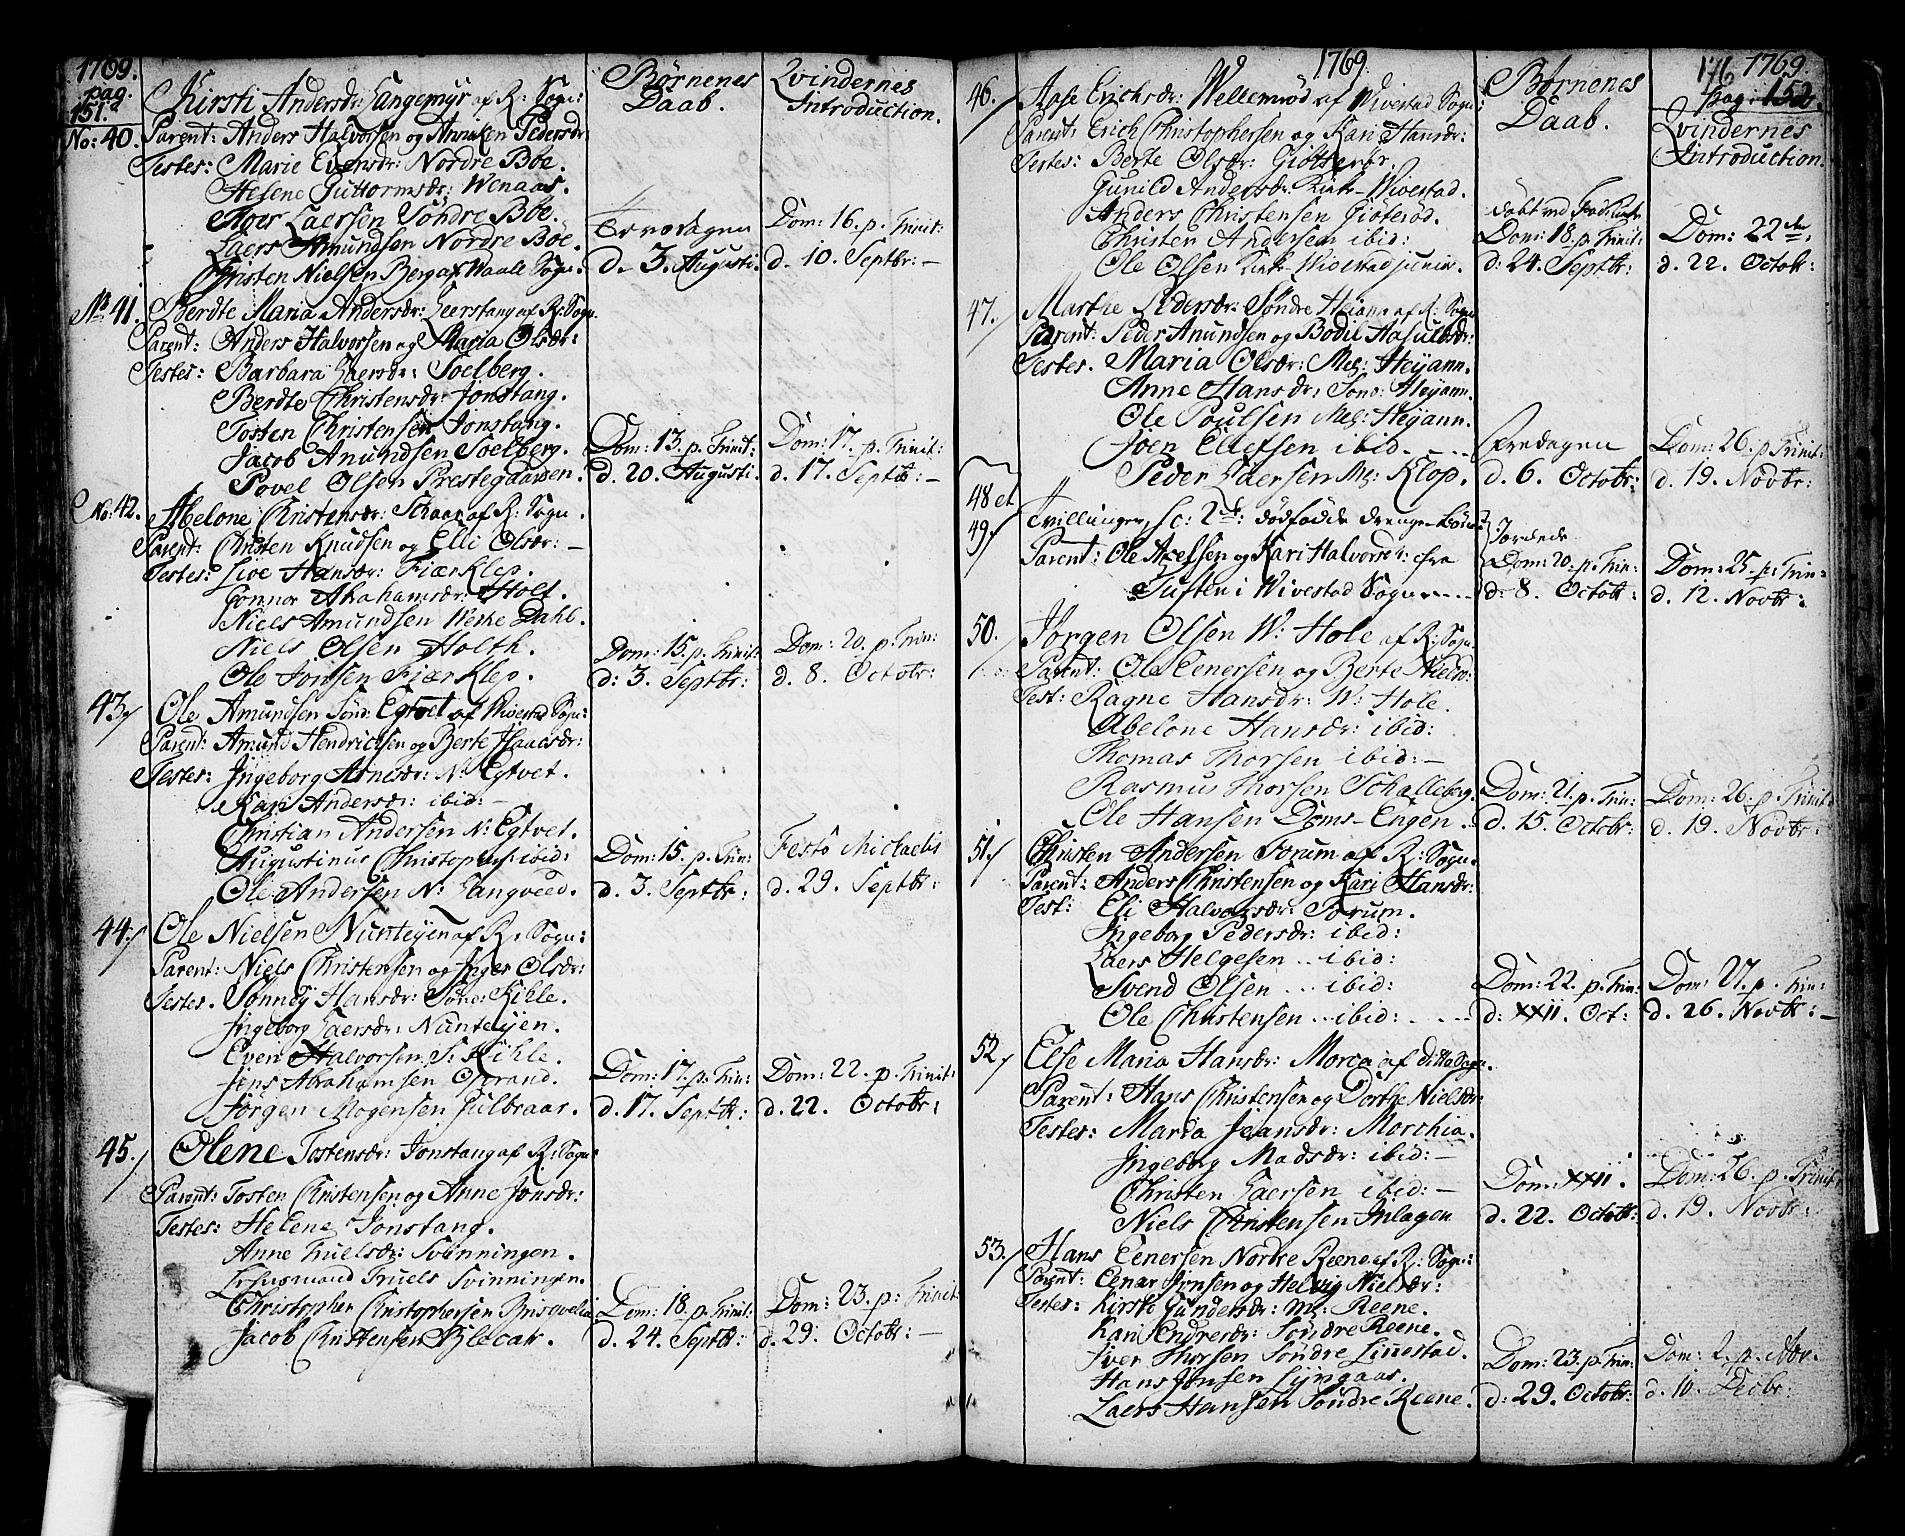 1769.
pag.
151.
Børnenes
Daab.
Qvindernes
Introduction.
No: 40.
Kirsti Andersdr: Langemyr af R: Sogn:
Parent: Anders Halvorsen og Anniken Pedersdr:
Testes: Marie Evensdr: Nordre Bøe.
Helene Guttormsdr: Wenaas.
Thoer Laersen Søndre Bøe.
Laers Amundsen Nordre Bøe.
Christen Nielsen Berg af Waale Sogn.
d. 3. Augusti.
Dom: 16. p. Trinit:
d. 10. Septbr: –
No 41.
Berdte Maria Andersdr: Leerstang af R: Sogn.
Parent: Anders Halvorsen og Maria Olsdr:
Testes: Barbara Laersdr: Soelberg.
Berdte Christensdr: Jonstang.
Tosten Christensen Jonstang.
Jacob Anundsen Soelberg.
Povel Olsen Prestegaarden.
Dom: 13. p. Trinit:
d. 20. Augusti.
Dom: 17. p. Trinit:
d. 17. Septbr: –
No: 42.
Abelone Christensdr: Schaar af R: Sogn.
Parent: Christen Knudsen og Elli Olsdr: –
Testes: Live Hansdr: Fiærklep.
Gonnor Abrahamsdr: Holt.
Niels Amundsen Werke Dahl.
Niels Olsen Holth.
Ole Jonsen Fiærklep.
Dom: 15. p. Trinit:
d: 3. Septbr:
Dom: 20. p. Trin:
d. 8. Octobr:
43.
Ole Amundsen Sønd: Egtvet af Wivestad Sogn:
Parent: Amund Hendrichsen og Berte Isaacsdr:
Testes: Ingeborg Arnesdr: N: Egtvet.
Kari Andersdr: ibid: –
Christian Andersen N: Egtvet.
Augustinus Christophers: ibid:
Ole Andersen N: Langved.
Dom: 15. p. Trin:
d. 3. Septbr:
Festo Michaelis
d. 29. Septbr:
44.
Ole Nielsen Nunteyen af R: Sogn:
Parent: Niels Christensen og Inger Olsdr:
Testes. Sønnøy Hansdr: Søndr: Kihle.
Ingeborg Laersdr: Nunteyen.
Even Halvorsen S: Kihle.
Jens Abrahamsen Østrand.
Jørgen Mogensen Julbraar.
Dom: 17. p. Trin:
d. 17. Septbr:
Dom: 22. p. Trinit:
d. 22. Octobr:
45.
Olene Tostensdr: Jonstang af R: Sogn:
Parent: Tosten Christensen og Anne Jonsdr:
Testes: Helene Jonstang.
Anne Truelsdr: Svinningen.
Truels Svinningen.
Christopher Christophersen
Jacob Christensen
Dom: 18. p. Trinit:
d. 24. Septbr:
Dom: 23. p: Trinit:
d. 29. Octobr: –
1769
176
1769.
pag: 152.
Børnenes
Daab.
Qvindernes
Introduction.
46.
Aase Erichsdr: Wellemrød af Wivestad Sogn:
Parent: Erich Christophersen og Kari Hansdr:
Testes: Berte Olsdr: Giøtterør.
Gunild Andersdr: Kirke-Wivestad.
Anders Christensen Giøterød.
Christen Andersen ibid:
Ole Olsen Kirke-Wivestad junior.
Dom: 18. p. Trinit:
d: 24. Septbr:
Dom: 22de.
d. 22. Octobr:
47.
Marthe Pedersdr: Søndre Heÿann af R: Sogn
Parent: Peder Anundsen og Bodil Aasulsdr:
Testes. Maria Olsdr: Mel: Heÿann.
Anne Hansdr: Sønd: Heÿann.
Ole Poulsen Mel: Heÿann.
Joen Ellefsen ibid.
Peder Laersen Ml: Klop.
Fredagen
d. 6. Octobr:
Dom: 26. p Trinit:
d. 19. Novbr:
48 et
49.
Tvillinger, sc: 2de: dødfødde drenge-Børn:
Parent: Ole Axelsen og Kari Halvorsdr: fra
Tuften i Wivestad Sogn
Jordede
Dom: 20. p. Trin:
d. 8. Octobr:
Dom: 25. p: Trin:
d. 12. Novbr:
50.
Jørgen Olsen W: Hole af R: Sogn.
Parent: Ole Eenersen og Berte Nielsd:
Test: Ragne Hansdr: W: Hole.
Abelone Hansdr: ibid:
Thomas Thorsen ibid: –
Rasmus Thorsen Schalleberg.
Ole Hansen Doms-Engen.
Dom: 21. p. Trin:
d. 15. Octobr:
Dom: 26. p. Trinit:
d. 19. Novbr:
51.
Christen Andersen Sorum af R: Sogn.
Parent: Anders Christensen og Kari Hansdr:
Test: Eli Halvorsdr: Sorum.
Ingeborg Pedersdr: ibid:
Laers Helgesen .. ibid:
Svend Olsen ... ibid:
Ole Christensen .. ibid:
Dom: 22. p. Trin.
d: XXII. Oct:
Dom: 27. p. Trin:
d. 26. Novbr: –
52.
Else Maria Hansdr: Morca af ditto Sogn.
Parent: Hans Christensen og Dorthe Nielsdr:
Testes: Maria Jensdr: Morchia.
Ingeborg Madsdr: ibid: –
Christen Laersen ibid: –
Niels Christensen Inlagen
Dom: XXII.
d. 22. Octobr:
Dom: 26. p. Trinit:
d. 19. Novbr:
53.
Hans Eenersen Nordre Reene af R: Sogn:
Parent: Eener Jonsen og Helvig Nielsdr:
Testes: Kirsti Gundersdr: Ml: Reene.
Kari Endresdr: Søndre Reene.
Iver Thorsen Søndre Linnestad.
Hans Jonsen Lyngaas.
Laers Hansen Søndre Reene.
Dom: 23. p. Trin:
d: 29. Octobr:
Dom: 2. p. Adv.
d. 10. Decbr: